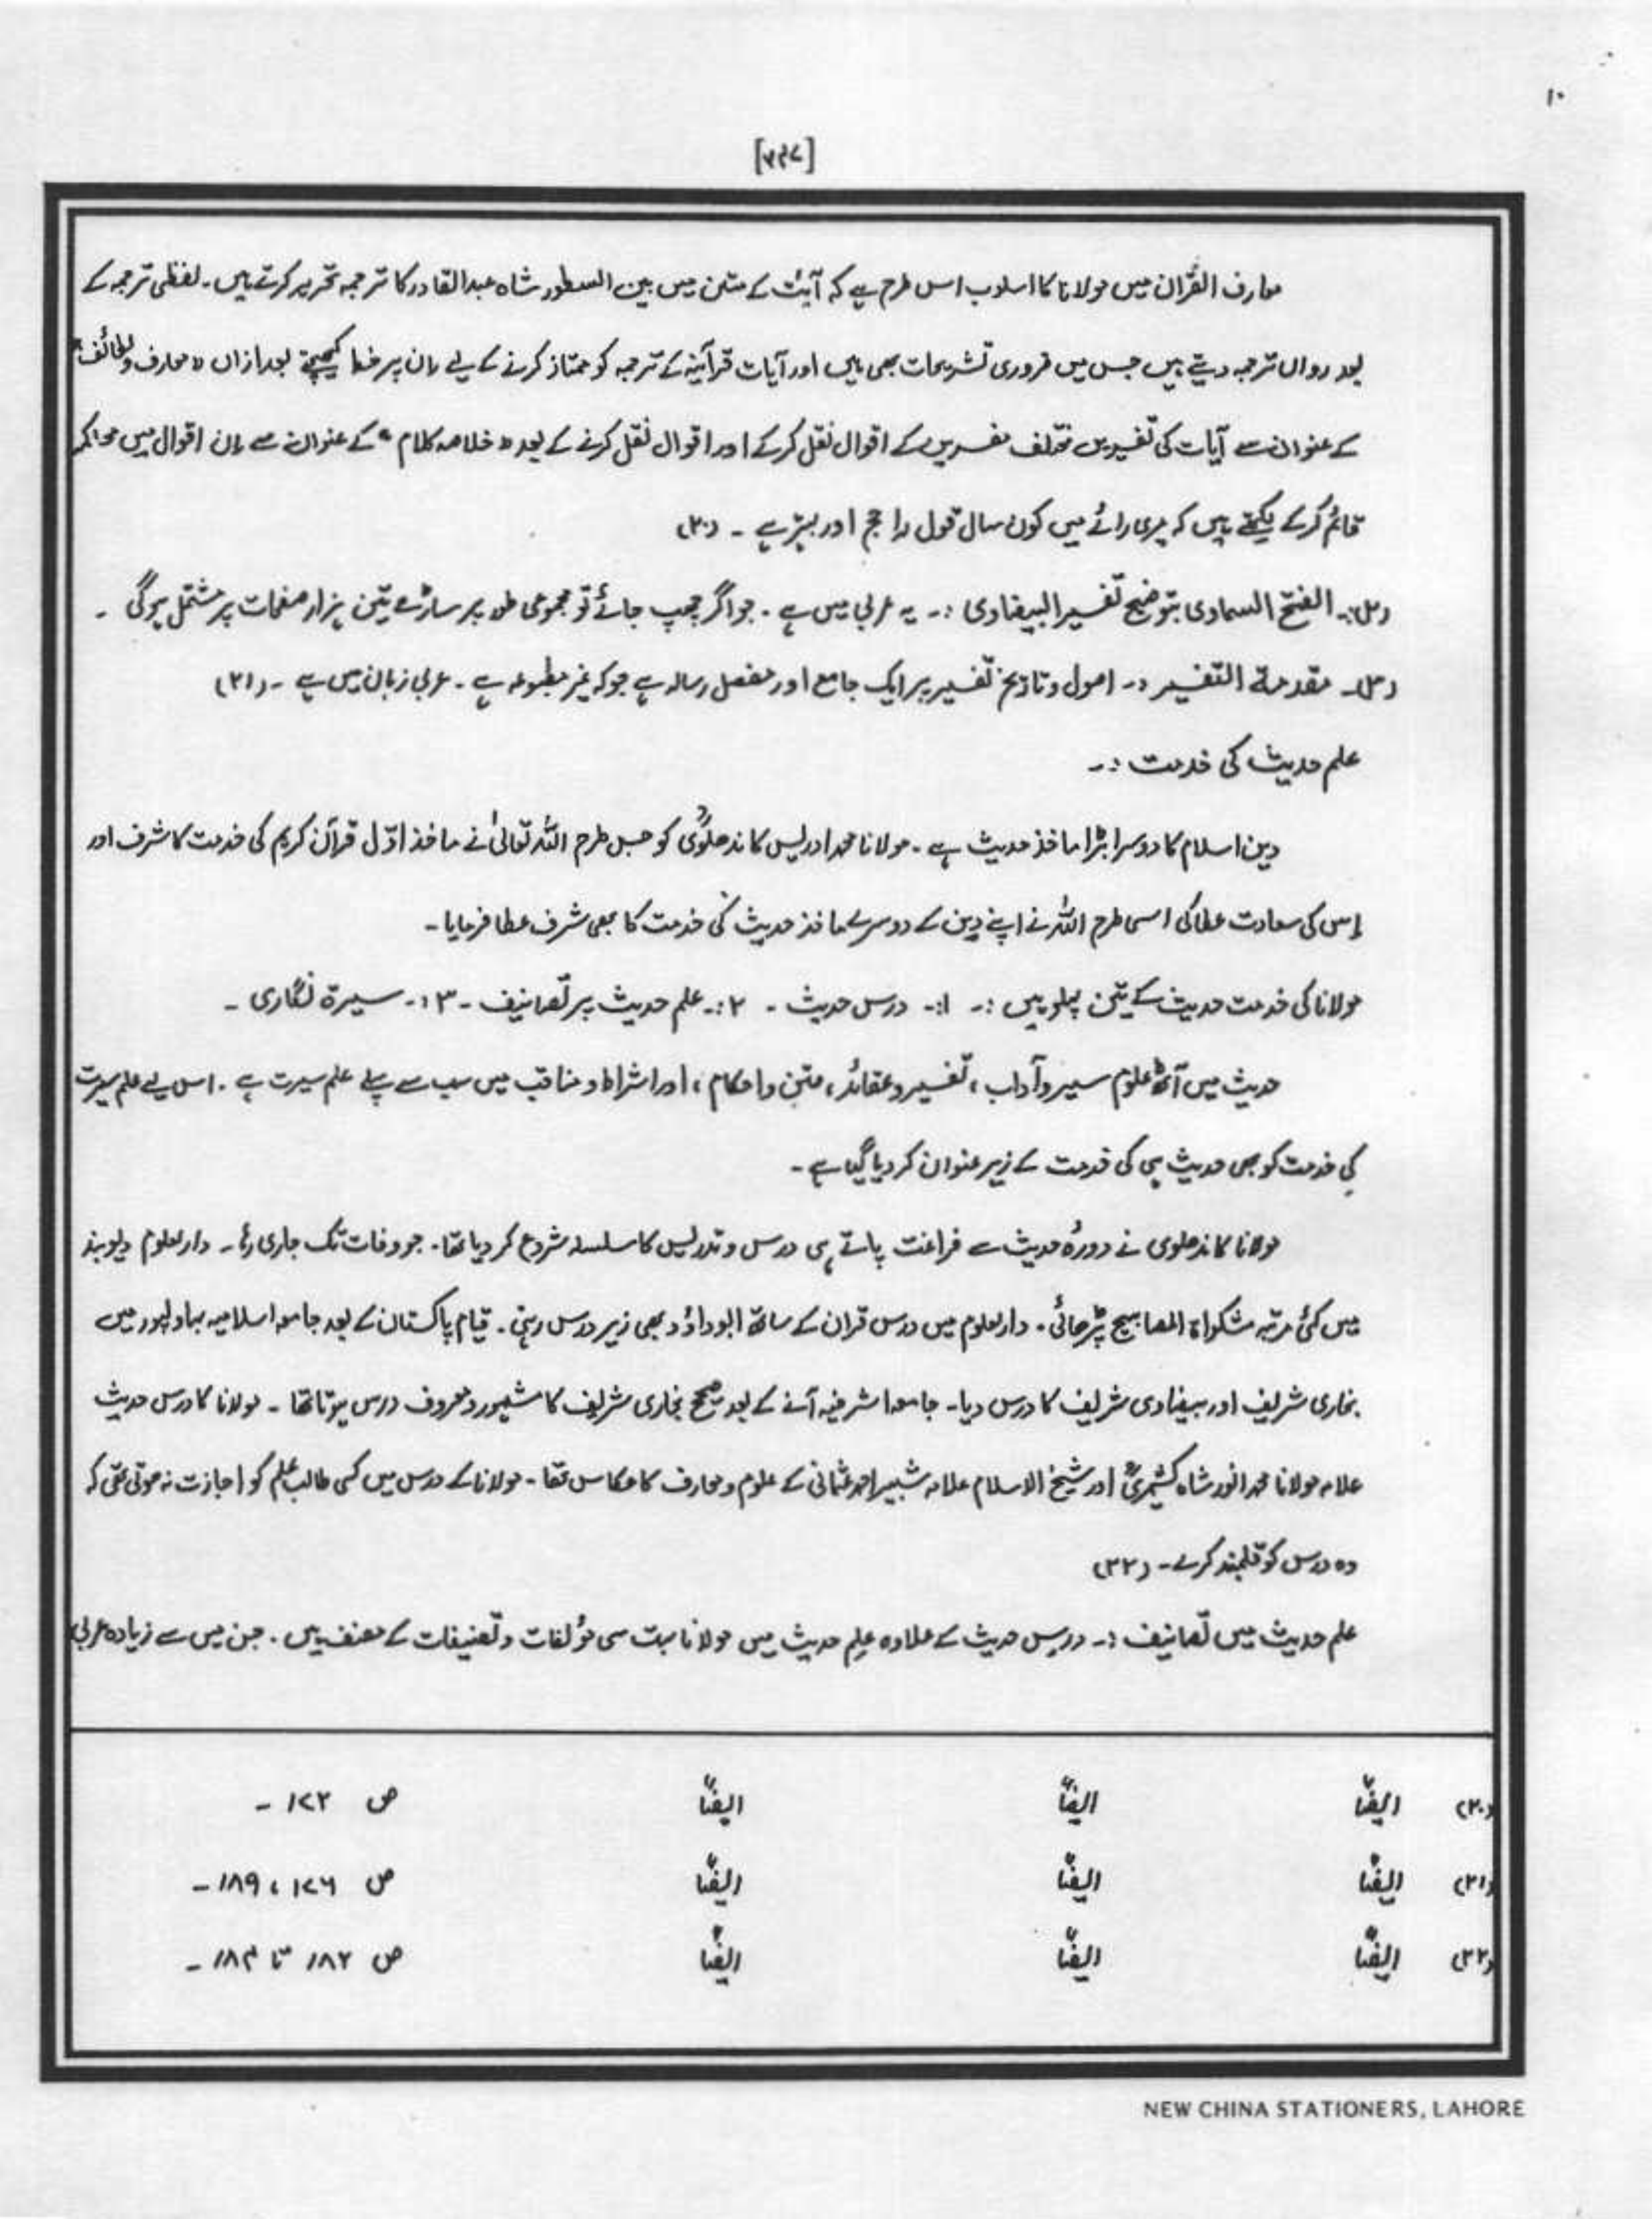 ۱۰
[۷۴۷]
معارف القرآن میں مولانا کا اسلوب اس طرح ہے کہ آیت کے متن میں بین السطور شاہ عبدالقادر کا ترجمہ تحریر کرتے ہیں۔ لفظی ترجمہ کے
بعد رواں ترجمہ دیتے ہیں جس میں ضروری تشریحات بھی ہیں اور آیات قرآنیہ کے ترجمہ کو ممتاز کرنے کے لیے ان پر خط کھینچتے بعد ازاں "معارف ولطائف"
کے عنوان سے آیات کی تفسیر میں مختلف مفسرین کے اقوال نقل کرکے اور اقوال نقل کرنے کے بعد "خلاصہ کلام" کے عنوان سے ان اقوال میں محاکمہ
قائم کرکے لکھتے ہیں کہ میری رائے میں کون سا قول راجح اور بہتر ہے ۔ (۲۰)
الفتح السماوی بتوضیح تفسیر البیضاوی :۔ یہ عربی میں ہے ۔ جو اگر چھپ جائے تو مجموعی طور پر ساڑھے تین ہزار صفحات پر مشتمل ہوگی ۔
مقدمۃ التفسیر :۔ اصول و تاریخ تفسیر پر ایک جامع اور مفصل رسالہ ہے جو کہ غیر مطبوعہ ہے ۔ عربی زبان میں ہے ۔ (۲۱)
علم حدیث کی خدمت :۔
دین اسلام کا دوسرا بڑا ماخذ حدیث ہے ۔ مولانا محمد ادریس کاندھلویؒ کو جس طرح اللہ تعالیٰ نے ماخذ اوّل قرآن کریم کی خدمت کا شرف اور
اس کی سعادت عطا کی اسی طرح اللہ نے اپنے دین کے دوسرے ماخذ حدیث کی خدمت کا بھی شرف عطا فرمایا ۔
مولانا کی خدمت حدیث کے تین پہلو ہیں :۔ ۱:۔ درس حدیث ۔ ۲:۔ علم حدیث پر تصانیف ۔ ۳:۔ سیرۃ نگاری ۔
حدیث میں آٹھ علوم سیر و آداب ، تفسیر و عقائد ، فتن و احکام ، اور اشراط و مناقب میں سب سے پہلے علم سیرت ہے ۔ اس لیے علم سیرت
کی خدمت کو بھی حدیث ہی کی خدمت کے زیر عنوان کر دیا گیا ہے ۔
مولانا کاندھلوی نے دورۂ حدیث سے فراغت پاتے ہی درس و تدریس کا سلسلہ شروع کر دیا تھا ۔ جو وفات تک جاری رہا ۔ دارلعلوم دیوبند
میں کئی مرتبہ مشکواۃ المصابیح پڑھائی ۔ دارلعلوم میں درس قرآن کے ساتھ ابوداؤد بھی زیر درس رہتی ۔ قیام پاکستان کے بعد جامعہ اسلامیہ بہاولپور میں
بخاری شریف اور بیضاوی شریف کا درس دیا ۔ جامعہ اشرفیہ آنے کے بعد صحیح بخاری شریف کا مشہور و معروف درس ہوتا تھا ۔ مولانا کا درس حدیث
علامہ مولانا محمد انور شاہ کشمیریؒ اور شیخ الاسلام علامہ شبیر احمد عثمانی کے علوم و معارف کا عکاس تھا ۔ مولانا کے درس میں کسی طالب علم کو اجازت نہ ہوتی تھی کہ
وہ درس کو قلمبند کرے ۔ (۲۲)
علم حدیث میں تصانیف :۔ درس حدیث کے علاوہ علم حدیث میں مولانا بہت سی مؤلفات و تصنیفات کے مصنف ہیں ۔ جن میں سے زیادہ عربی
(۲۰) ایضاً ایضاً ایضاً ص ۱۷۲ ۔
(۲۱) ایضاً ایضاً ایضاً ص ۱۷۶ ، ۱۸۹ ۔
(۲۲) ایضاً ایضاً ایضاً ص ۱۸۲ تا ۱۸۴ ۔
NEW CHINA STATIONERS, LAHORE